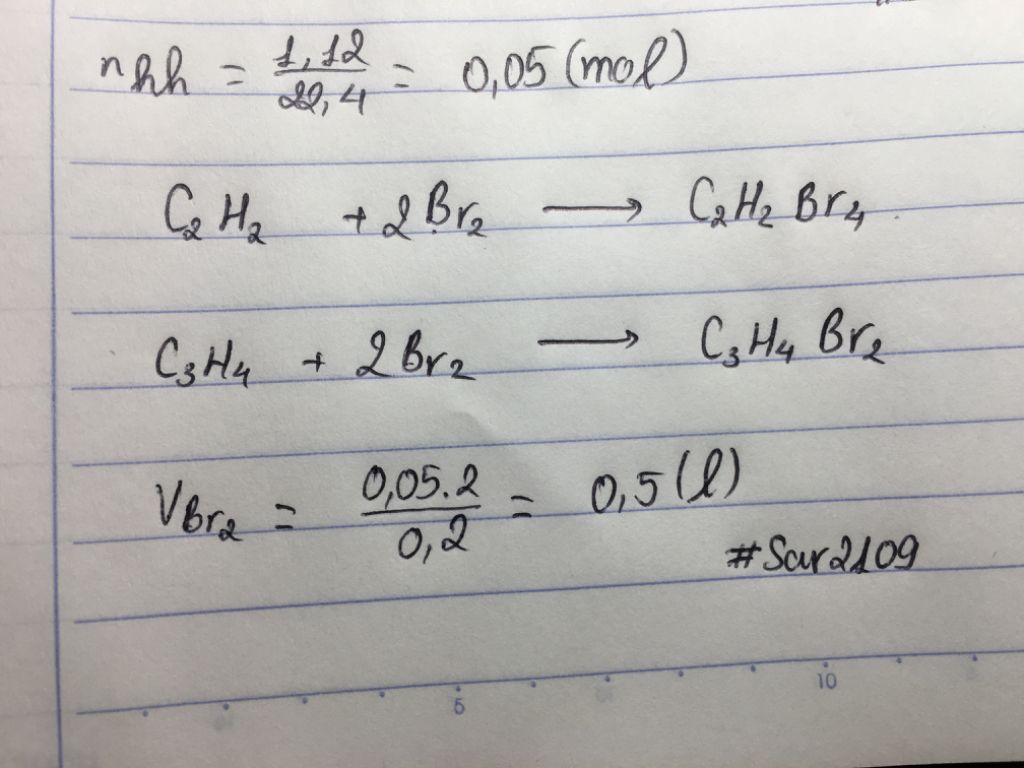 nhh = 1,12 / 22,4 = 0,05 (mol)
C₂H₂ + 2Br₂ ⟶ C₂H₂Br₄
C₃H₄ + 2Br₂ ⟶ C₃H₄Br₂
V_Br₂ = 0,05.2 / 0,2 = 0,5 (l)
#Sar2109
5 10